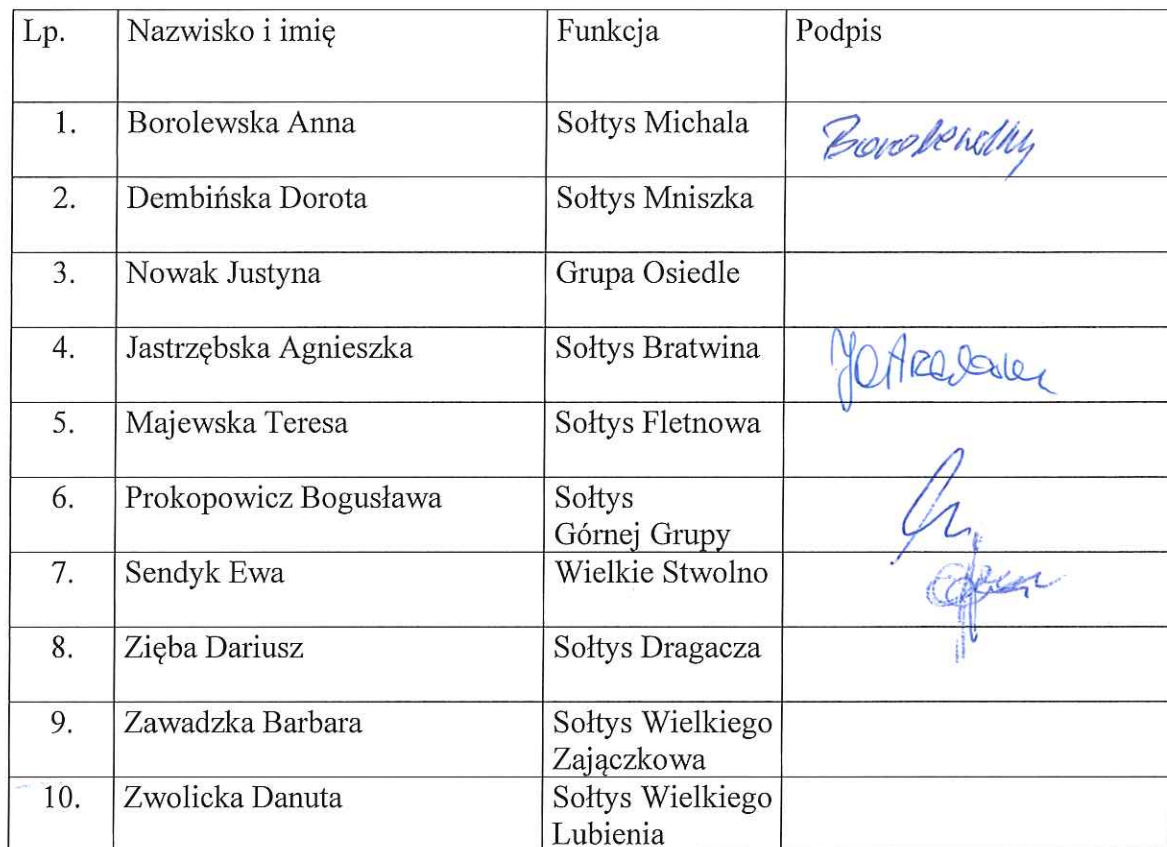 Lp. Nazwisko i imię Funkcja Podpis
1. Borolewska Anna Sołtys Michala
2. Dembińska Dorota Sołtys Mniszka
3. Nowak Justyna Grupa Osiedle
4. Jastrzębska Agnieszka Sołtys Bratwina
5. Majewska Teresa Sołtys Fletnowa
6. Prokopowicz Bogusława Sołtys
Górnej Grupy
7. Sendyk Ewa Wielkie Stwolno
8. Zięba Dariusz Sołtys Dragacza
9. Zawadzka Barbara Sołtys Wielkiego
Zajączkowa
10. Zwolicka Danuta Sołtys Wielkiego
Lubienia